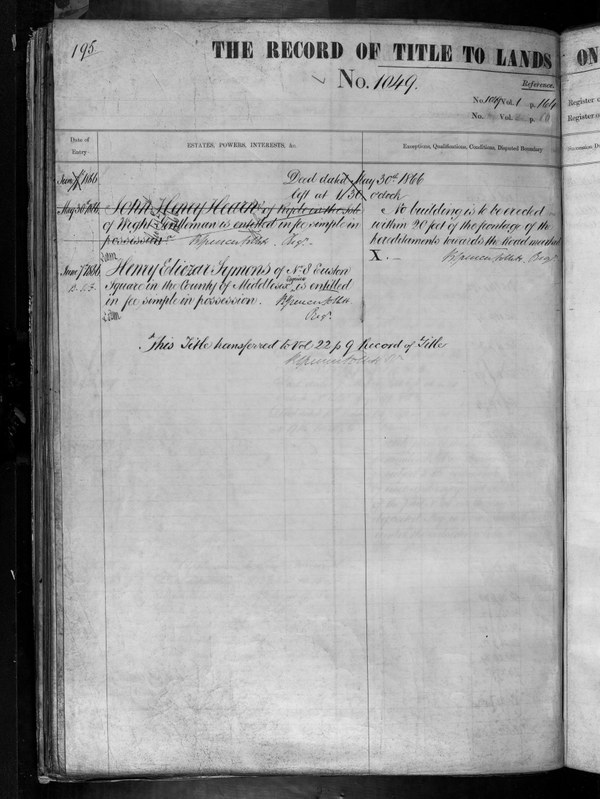 195
THE RECORD OF TITLE TO LANDS ON
No. 1049.
Reference.
No. 1049 Vol. 1 p. 164
No. Vol. p.
Register o
Register o
Date of
Entry
ESTATES, POWERS, INTERESTS, &c.
Exceptions, Qualifications, Conditions, Disputed Boundary
Succession D
June 1866 Deed dated May 30th 1866
left at 1/30 oclock
May 30th 1866 John Henry Hearn of Ryde in the Isle
of Wight Gentleman is entitled in fee simple in
possession Regr.
No building is to be erected
within 20 feet of the frontage of the
hereditaments towards the Road marked
X. Regr.
June 7th 1866 Henry Eliezar Symons of No 8 Euston
Square in the County of Middlesex Esquire is entitled
in fee simple in possession.
Regr.
This Title transferred to Vol 22 p 9 Record of Title